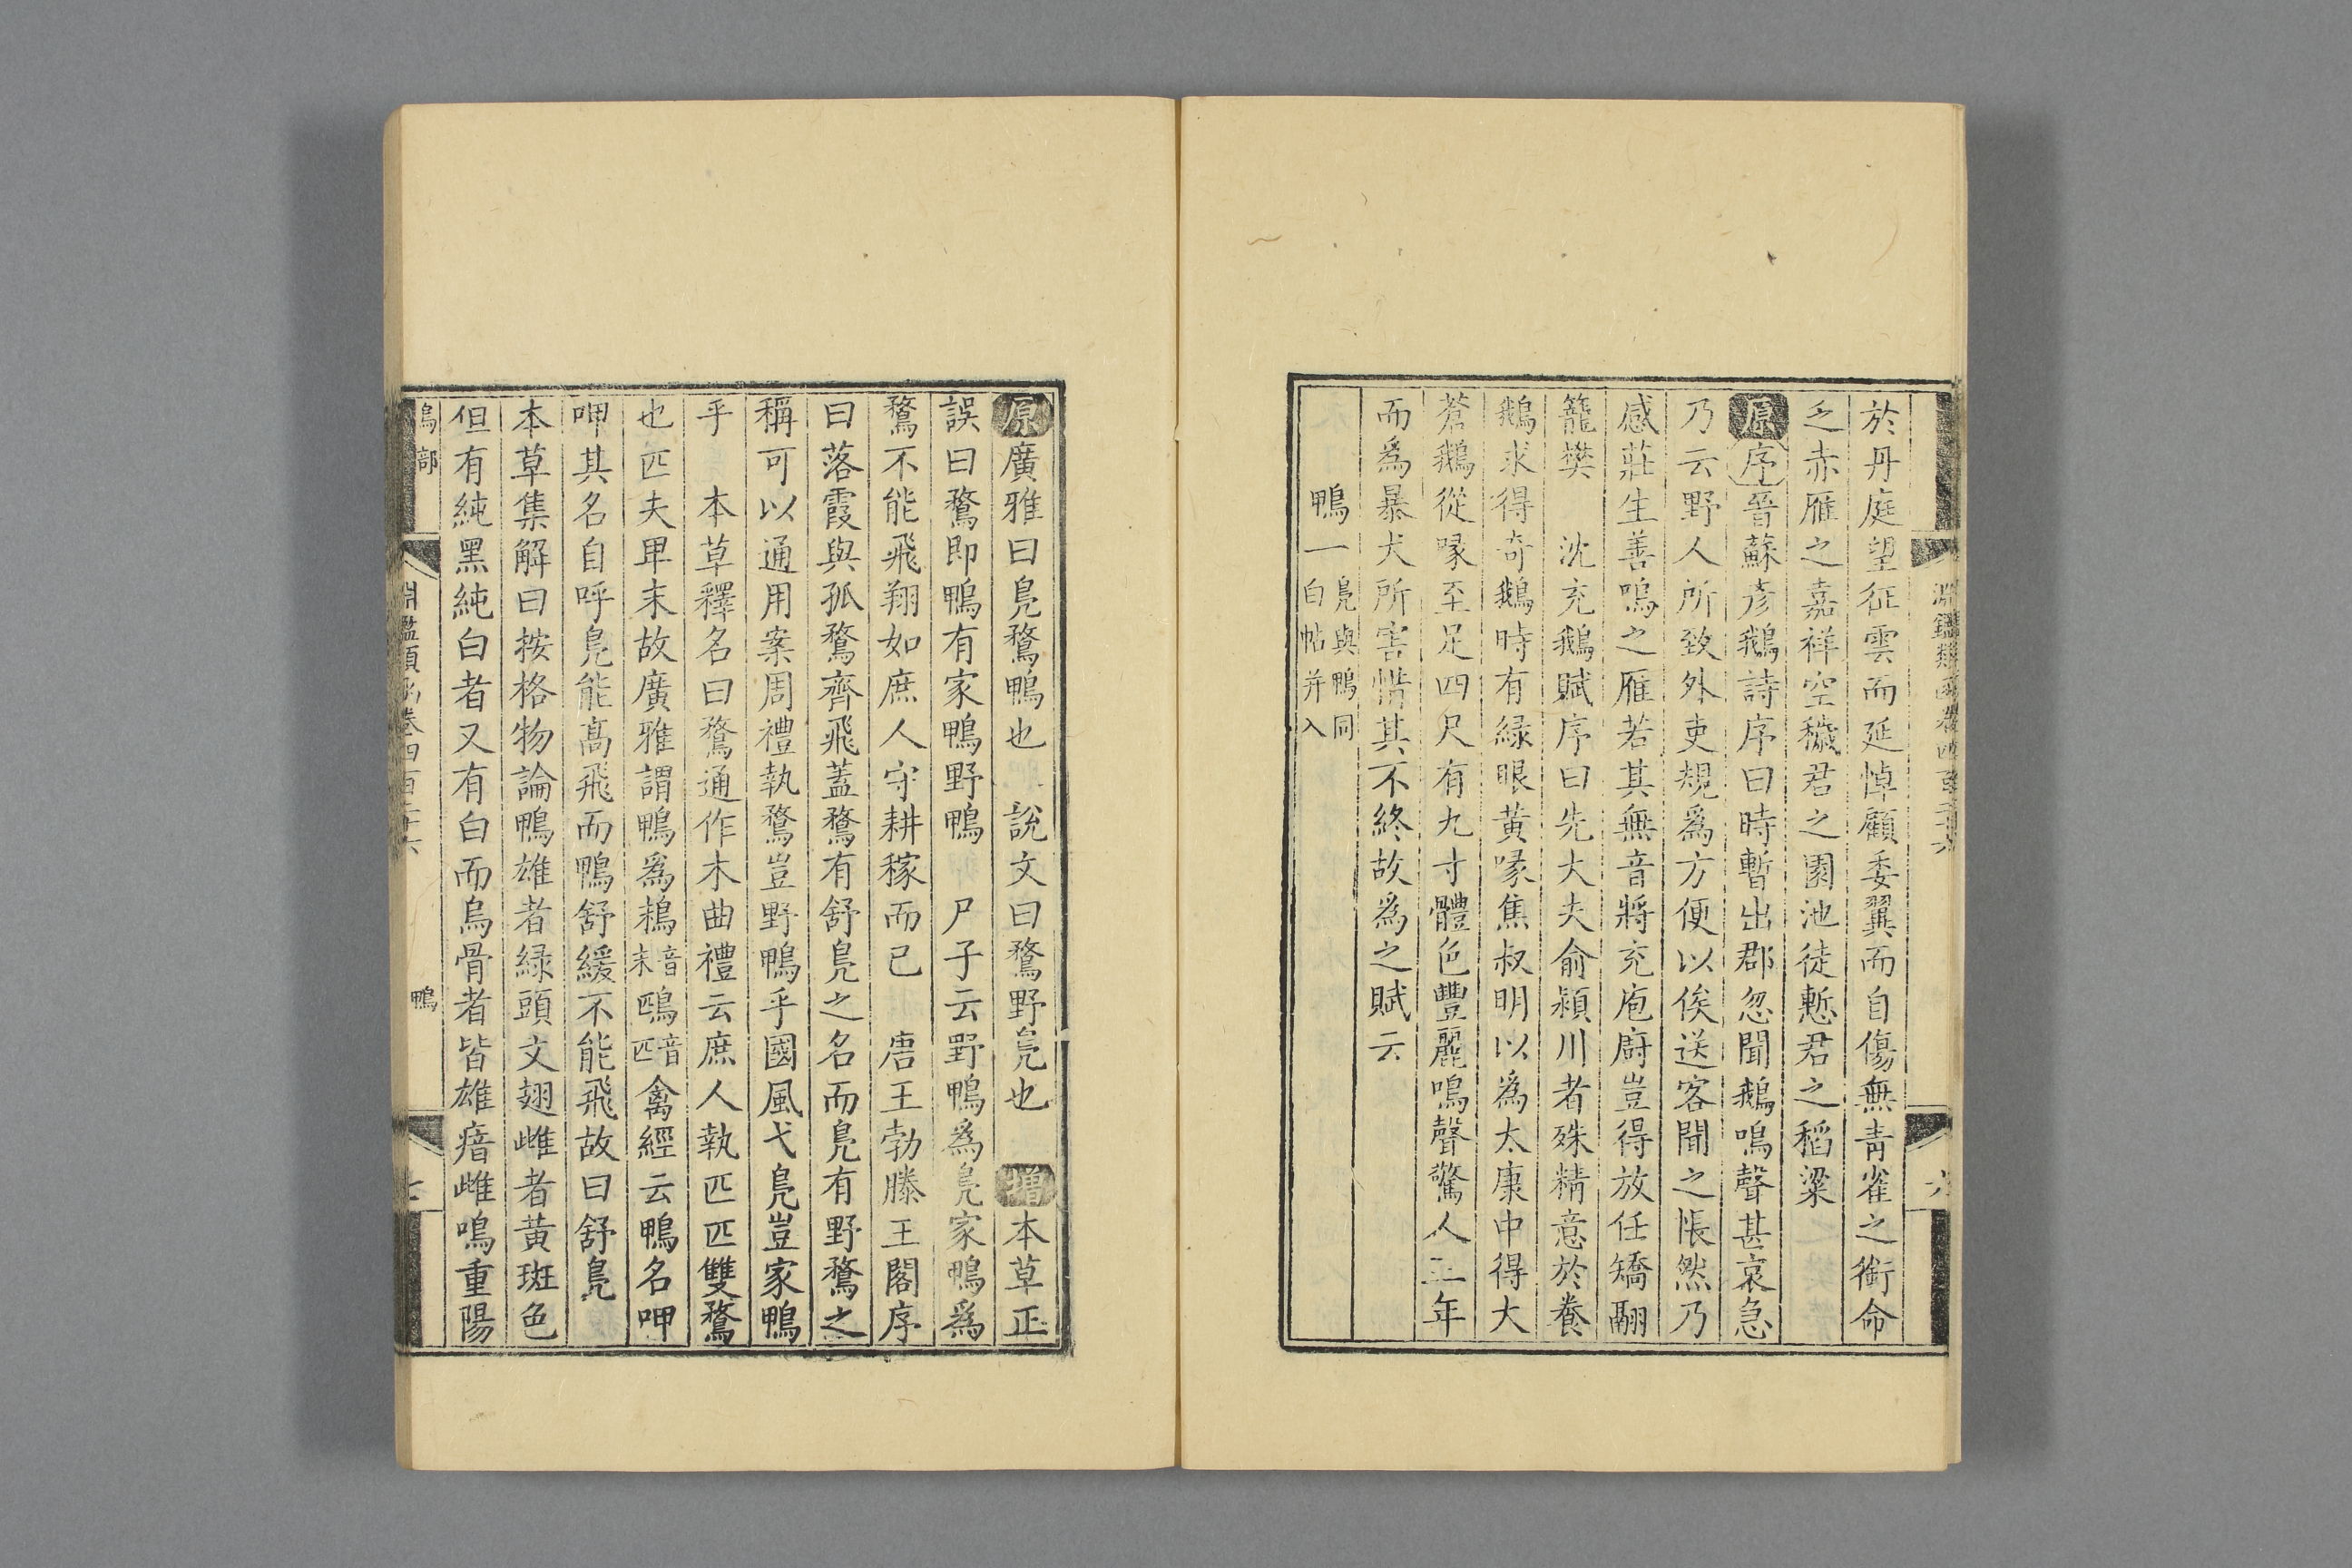 淵鑑類函卷四百二十六
六
於丹庭望征雲而延悼顧委翼而自傷無青雀之銜命
乏赤雁之嘉祥空穢君之園池徒慙君之稻粱
原序晉蘇彥鵝詩序曰時暫出郡忽聞鵝鳴聲甚哀急
乃云野人所致外吏規爲方便以俟送客聞之悵然乃
感莊生善鳴之雁若其無音將充庖廚豈得放任矯翮
籠樊　沈充鵝賦序曰先大夫俞穎川者殊精意於養
鵝求得奇鵝時有綠眼黃喙焦叔明以爲太康中得大
蒼鵝從喙至足四尺有九寸體色豐麗鳴聲驚人三年
而爲暴犬所害惜其不終故爲之賦云
鴨一鳧與鴨同白帖并入
原廣雅曰鳧鶩鴨也　說文曰鶩野鳧也　增本草正
誤曰鶩即鴨有家鴨野鴨　尸子云野鴨爲鳧家鴨爲
鶩不能飛翔如庶人守耕稼而已　唐王勃滕王閣序
曰落霞與孤鶩齊飛蓋鶩有舒鳧之名而鳧有野鶩之
稱可以通用案周禮執鶩豈野鴨乎國風弋鳧豈家鴨
乎　本草釋名曰鶩通作木曲禮云庶人執匹匹雙鶩
也匹夫卑末故廣雅謂鴨爲鶩音末鴄音匹禽經云鴨名呷
呷其名自呼鳧能高飛而鴨舒緩不能飛故曰舒鳧
本草集解曰按格物論鴨雄者綠頭文翅雌者黃斑色
但有純黑純白者又有白而烏骨者皆雄瘖雌鳴重陽
鳥部
淵鑑類函卷四百二十六
鴨
七